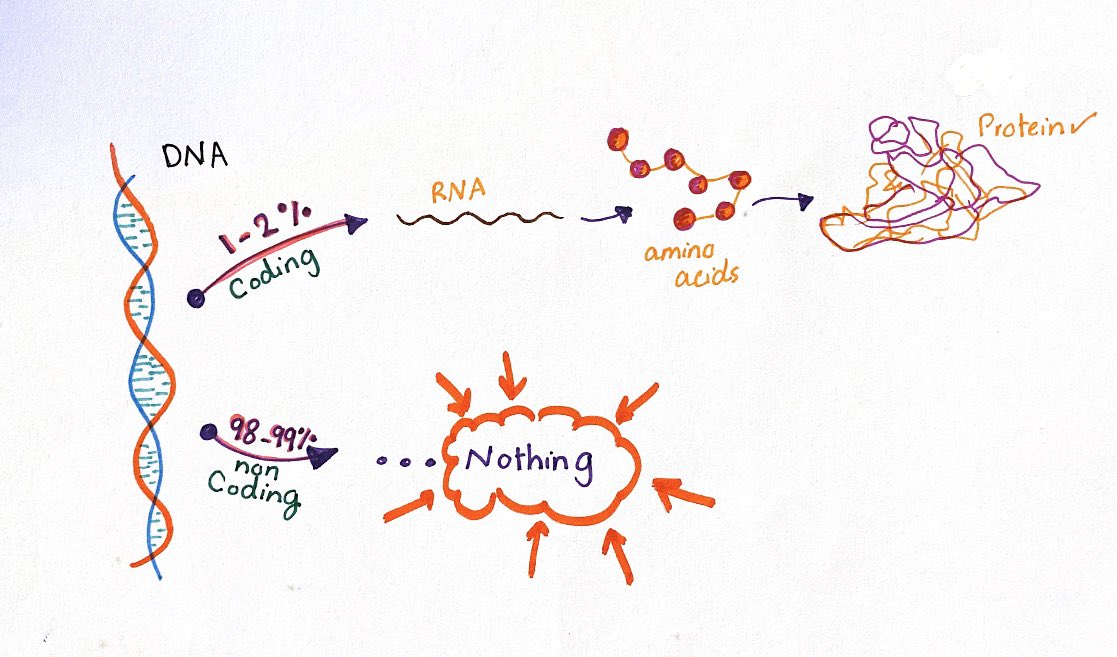 DNA
1-2%
Coding
RNA
amino
acids
Protein✓
98-99%
non
Coding
...Nothing